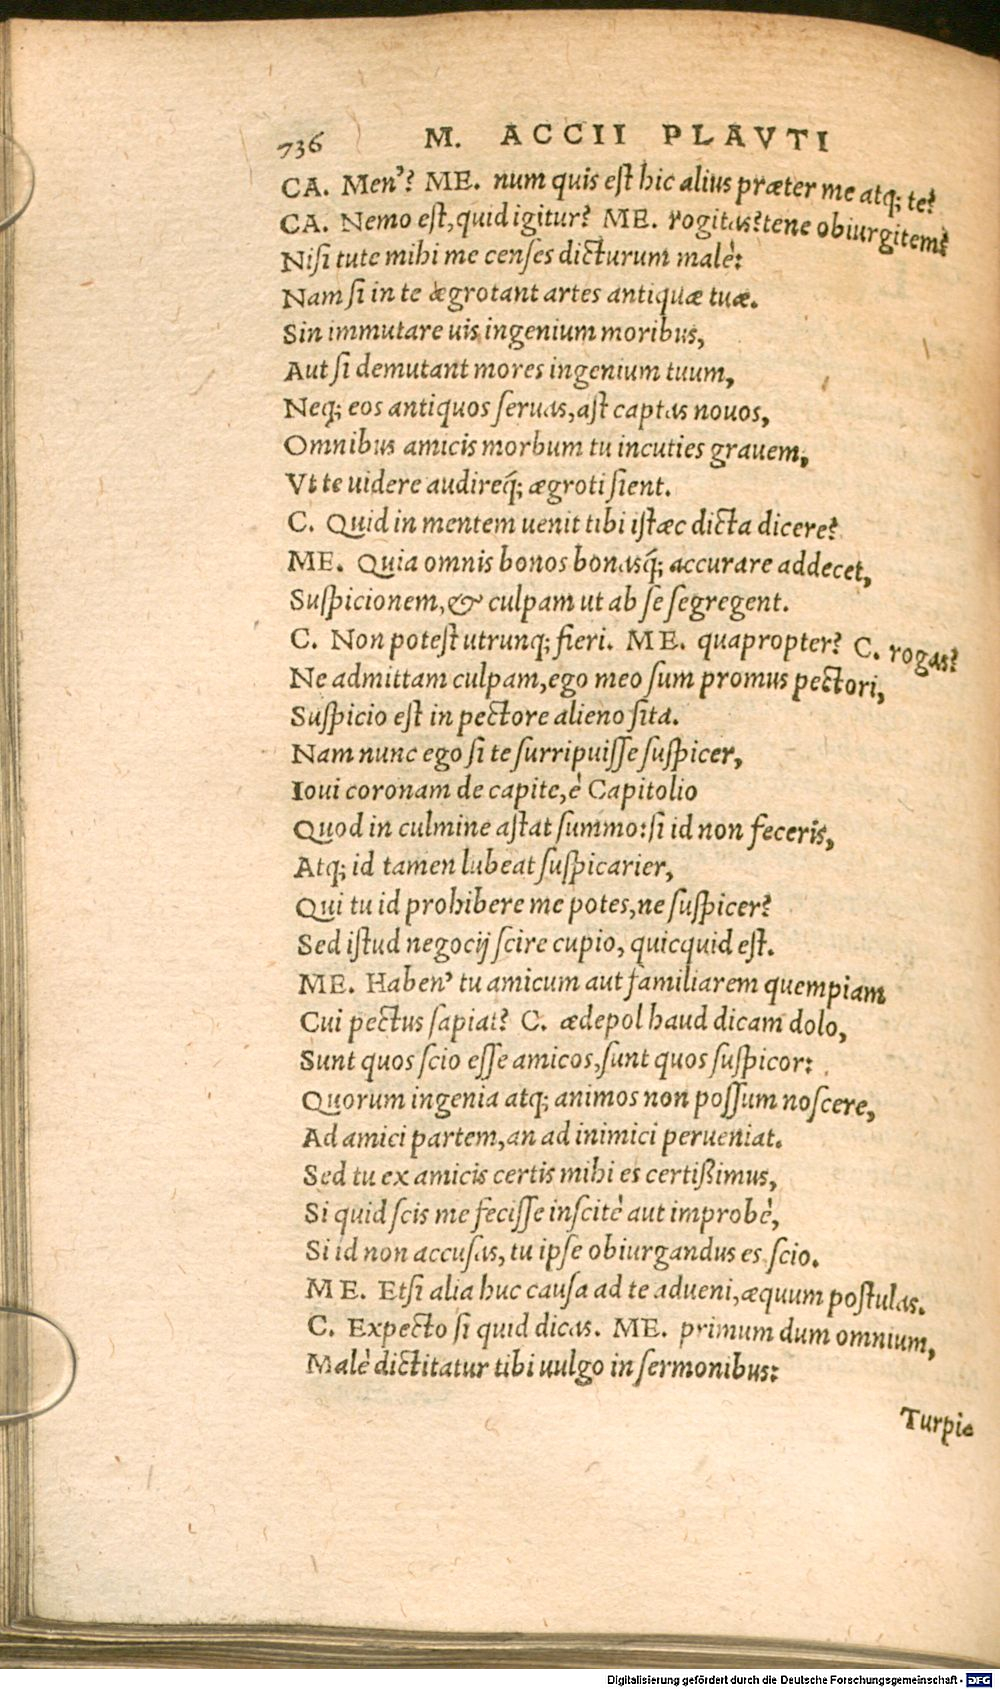 736 M. ACCII PLAVTI
CA. Men'? ME. num quis est hic alius præter me atq; te?
CA. Nemo est, quid igitur? ME. rogitas? tene obiurgitem?
Nisi tute mihi me censes dicturum malè:
Nam si in te ægrotant artes antiquæ tuæ.
Sin immutare uis ingenium moribus,
Aut si demutant mores ingenium tuum,
Neq; eos antiquos seruas, ast captas nouos,
Omnibus amicis morbum tu incuties grauem,
Vt te uidere audireq́; ægroti sient.
C. Quid in mentem uenit tibi istæc dicta dicere?
ME. Quia omnis bonos bonasq́; accurare addecet,
Suspicionem, & culpam ut ab se segregent.
C. Non potest utrunq; fieri. ME. quapropter? C. rogas?
Ne admittam culpam, ego meo sum promus pectori,
Suspicio est in pectore alieno sita.
Nam nunc ego si te surripuisse suspicer,
Ioui coronam de capite, è Capitolio
Quod in culmine astat summo: si id non feceris,
Atq; id tamen lubeat suspicarier,
Qui tu id prohibere me potes, ne suspicer?
Sed istud negocij scire cupio, quicquid est.
ME. Haben' tu amicum aut familiarem quempiam
Cui pectus sapiat? C. ædepol haud dicam dolo,
Sunt quos scio esse amicos, sunt quos suspicor:
Quorum ingenia atq; animos non possum noscere,
Ad amici partem, an ad inimici perueniat.
Sed tu ex amicis certis mihi es certißimus,
Si quid scis me fecisse inscitè aut improbè,
Si id non accusas, tu ipse obiurgandus es scio.
ME. Etsi alia huc causa ad te adueni, æquum postulas.
C. Expecto si quid dicas. ME. primum dum omnium,
Malè dictitatur tibi uulgo in sermonibus:
Turpi-
Digitalisierung gefördert durch die Deutsche Forschungsgemeinschaft - DFG